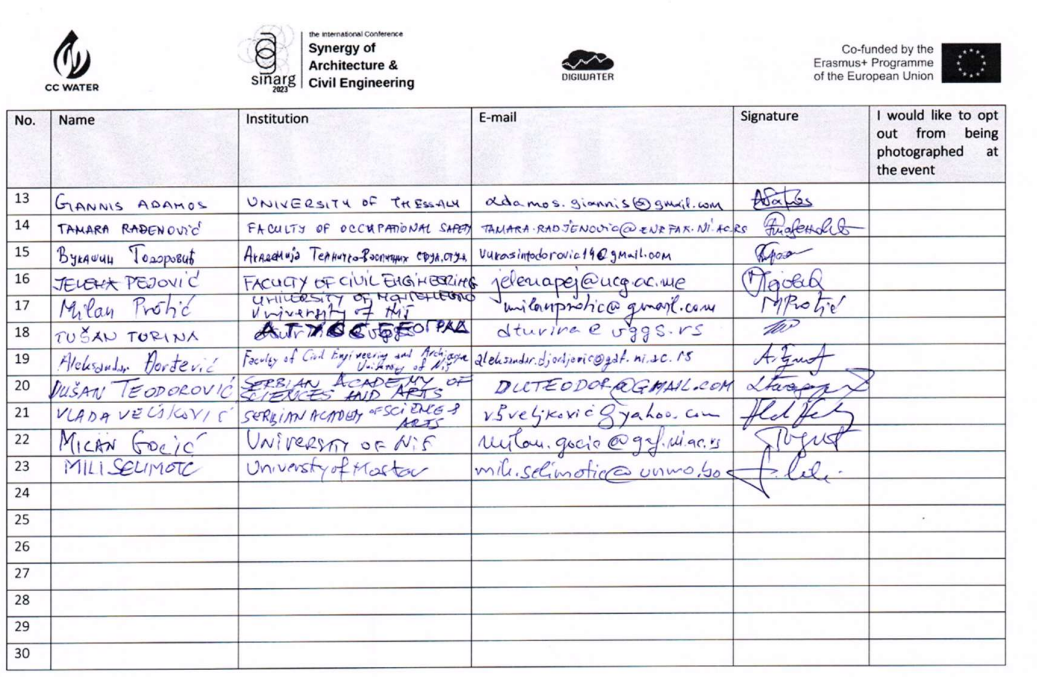 CC WATER
sinarg
2023
the International Conference
Synergy of
Architecture &
Civil Engineering
DIGIWATER
Co-funded by the
Erasmus+ Programme
of the European Union
No. Name Institution E-mail Signature I would like to opt
out from being
photographed at
the event
13 GIANNIS ADAMOS UNIVERSITY OF THESSALY adamos.giannis@gmail.com
14 TAMARA RAĐENOVIĆ FACULTY OF OCCUPATIONAL SAFETY TAMARA.RADJENOVIC@ZNRFAK.NI.AC.RS
15 Вукашин Тодоровић Академија vukasintodorovic14@gmail.com
16 JELENA PEJOVIĆ FACULTY OF CIVIL ENGINEERING jelenapej@ucg.ac.me
UNIVERSITY OF MONTENEGRO
17 Milan Protić University of Niš milanprotic@gmail.com MProtić
18 DUŠAN TURINA dturina@vggs.rs
19 Aleksandar Đorđević Faculty of Civil Engineering and Architecture aleksandar.djordjevic@gaf.ni.ac.rs
University of Niš
20 DUŠAN TEODOROVIĆ SERBIAN ACADEMY OF DUTEODOR@GMAIL.COM
SCIENCES AND ARTS
21 VLADA VELJKOVIĆ SERBIAN ACADEMY OF SCIENCE & vbveljkovic@yahoo.com
ARTS
22 MILAN GOCIĆ UNIVERSITY OF NIŠ milan.gocic@gaf.ni.ac.rs
23 MILI SELIMOTC University of Mostar mili.selimotic@unmo.ba
24
25
26
27
28
29
30